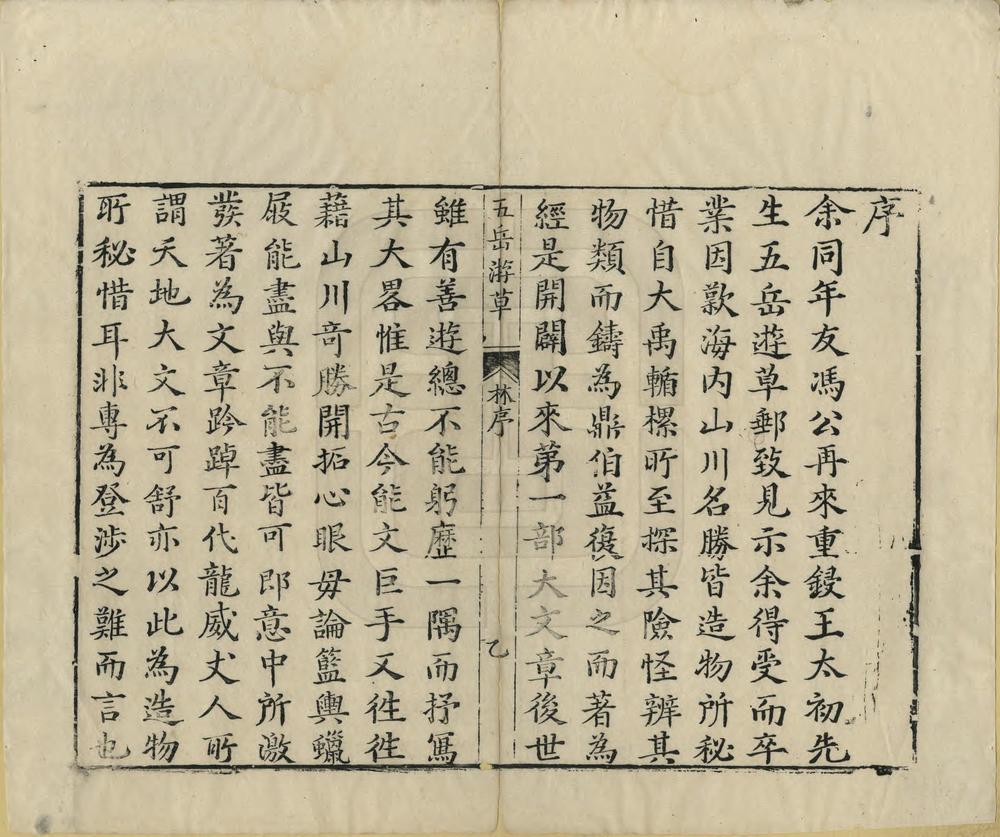 序
余同年友馮公再來重鋟王太初先
生五岳遊草郵致見示余得受而卒
業因歎海内山川名勝皆造物所秘
惜自大禹輴樏所至探其險怪辨其
物類而鑄為鼎伯益復因之而著為
經是開闢以來第一部大文章後世
五岳游草
林序
乙
雖有善遊總不能躬歷一隅而抒寫
其大畧惟是古今能文巨手又徃徃
藉山川竒勝開拓心眼毋論籃輿蠟
屐能盡與不能盡皆可即意中所激
發著為文章跨踔百代龍威丈人所
謂天地大文不可舒亦以此為造物
所秘惜耳非專為登涉之難而言也